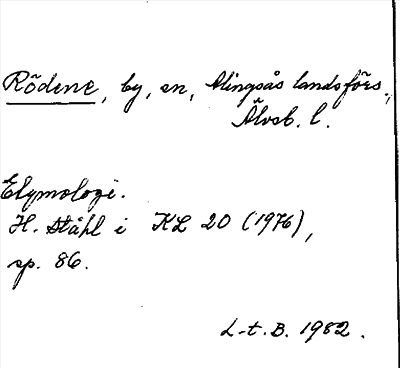 Rödene, by, en, Alingsås landsförs.,
Älvsb. l.
Etymologi.
H. Ståhl i KL 20 (1976),
sp. 86.
L-t. B. 1982.